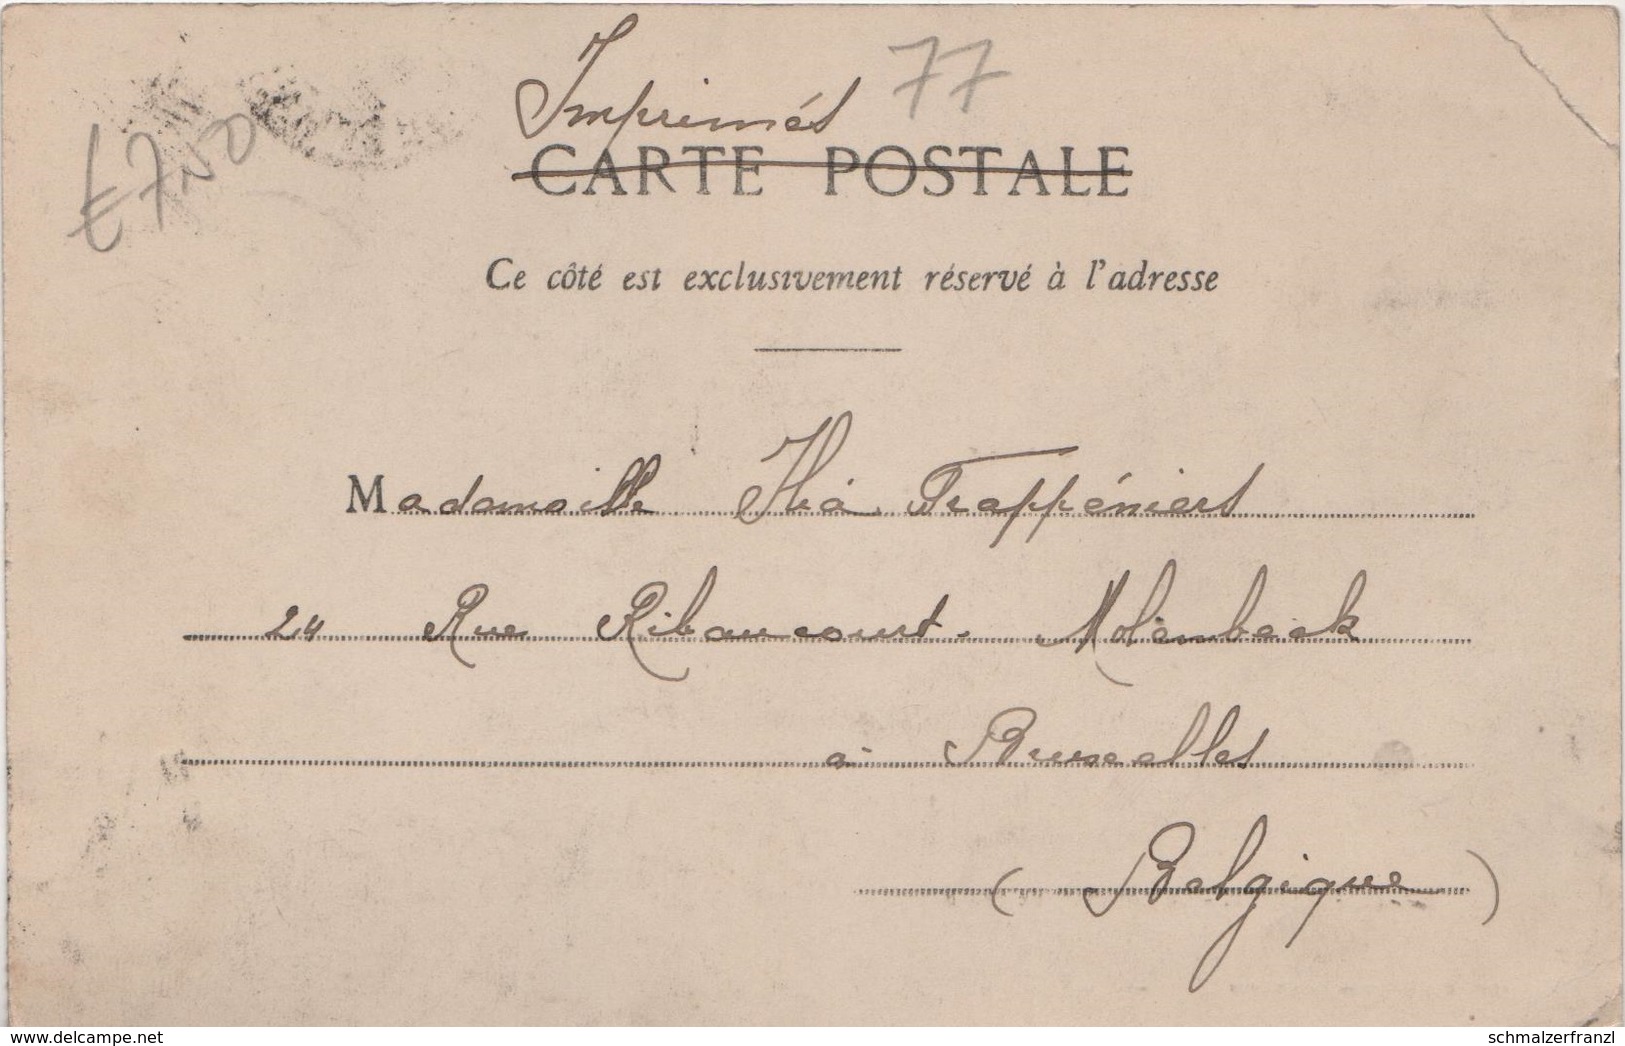 Imprimés 77
£7,50
CARTE POSTALE
Ce côté est exclusivement réservé à l'adresse
Mademoiselle Trappéniers
24 Rue Ribaucourt. Molenbeek
à Bruxelles
(Belgique)
www.delcampe.net
schmalzerfranzl